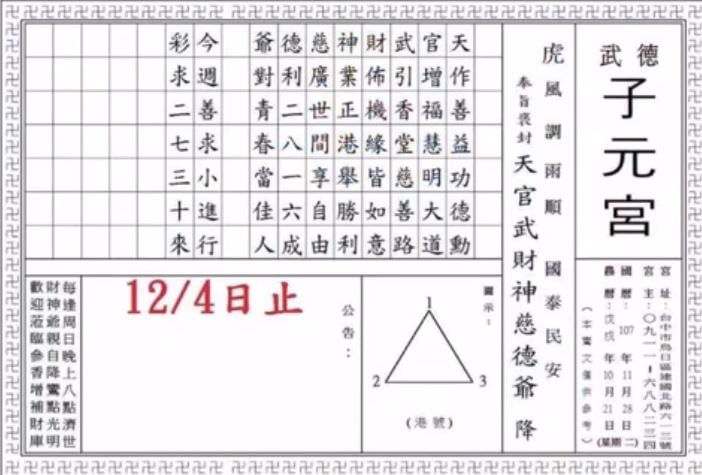 武 德
子元宮
宮址:台中市烏日區建國北路六一三號
宮主:〇九一一-六八八二三四
國曆:107年11月28日
農曆:戊戌年10月21日(星期二)
(本鸞文僅供參考)
虎
風調雨順 國泰民安
奉旨褒封 天官武財神慈德爺 降
天作善益功德勳
官增福慧明大道
武引香堂慈善路
財佈機緣皆如意
神業正港舉勝利
慈廣世間享自由
德利二八一六成
爺對青春當佳人
今週善求小進行
彩求二七三十來
圖示:
1
2
3
(港號)
公告:
12/4日止
每逢周日晚上八點濟世
財神爺親自降鸞點光明
歡迎蒞臨參香增補財庫